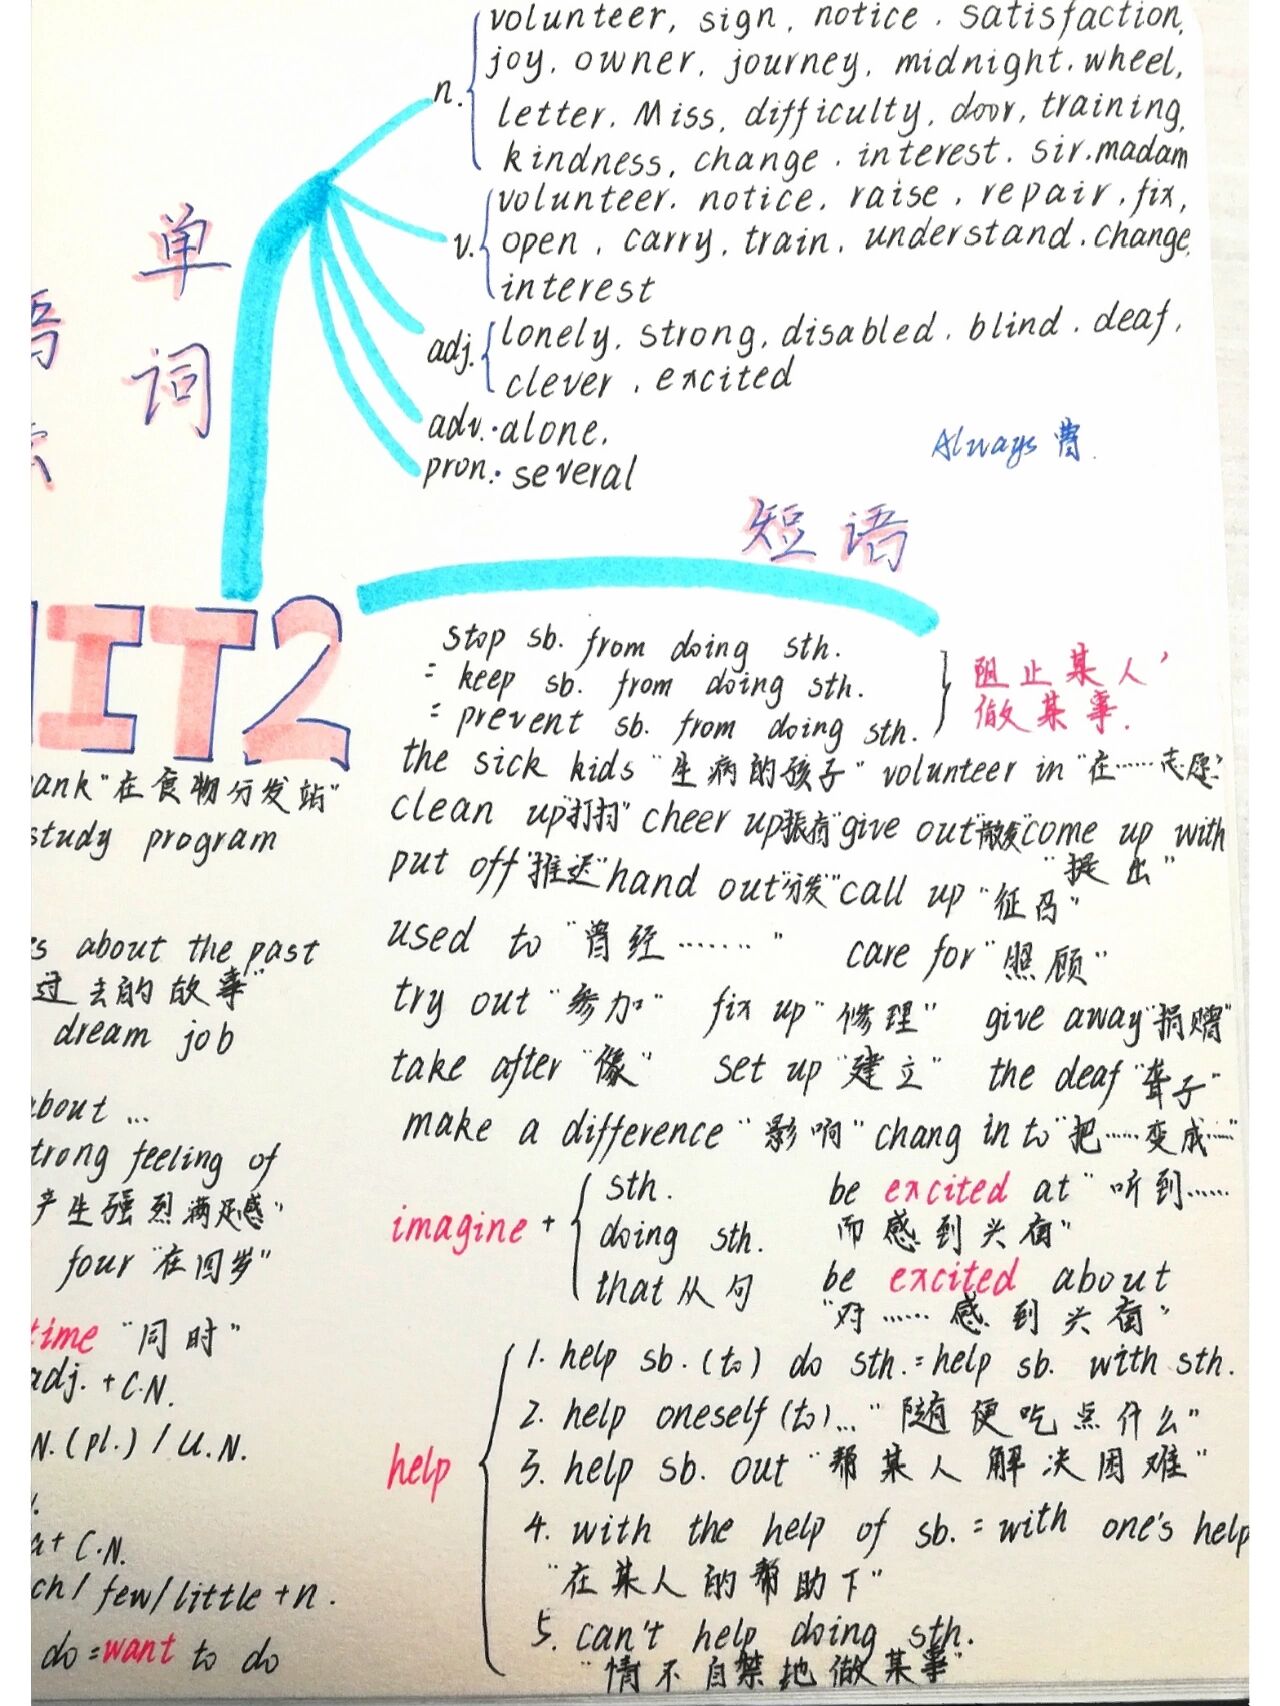 volunteer, sign, notice. satisfaction,
joy, owner, journey, midnight. wheel,
n.
letter. Miss, difficulty, door, training,
kindness, change. interest. sir. madam
volunteer. notice. raise. repair. fix,
v.
open. carry, train. understand. change,
interest
单词
adj.
lonely. strong, disabled. blind. deaf,
clever. excited
adv. · alone.
pron. · several
Always 曹.
语
短语
UNIT2
stop sb. from doing sth.
= keep sb. from doing sth.
= prevent sb. from doing sth.
阻止某人
做某事.
the sick kids "生病的孩子" volunteer in "在……志愿"
clean up "打扫" cheer up "振奋" give out "散发" come up with
"提出"
put off "推迟" hand out "分发" call up "征召"
used to "曾经……" care for "照顾"
try out "参加" fix up "修理" give away "捐赠"
take after "像" set up "建立" the deaf "聋子"
make a difference "影响" chang in to "把……变成…"
imagine +
sth.
doing sth.
that 从句
be excited at "听到……
而感到兴奋"
be excited about
"对……感到兴奋"
help
1. help sb. (to) do sth. = help sb. with sth.
2. help oneself (to)... "随便吃点什么"
3. help sb. out "帮某人解决困难"
4. with the help of sb. = with one's help
"在某人的帮助下"
5. can't help doing sth.
"情不自禁地做某事"
ank "在食物分发站"
study program
s about the past
过去的故事"
dream job
about ...
trong feeling of
产生强烈满足感"
four "在四岁"
time "同时"
adj. + C.N.
N. (pl.) / U.N.
a + C.N.
ch / few / little + n.
do = want to do